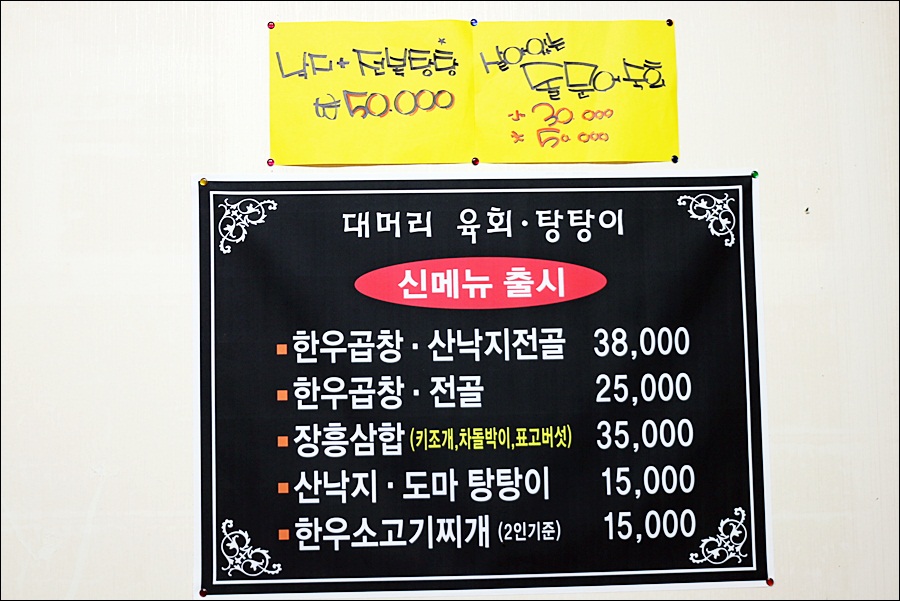 낙지+전복탕탕*
₩50.000
살아있는
돌문어·숙회
소 30.000
대 50.000
대머리 육회·탕탕이
신메뉴 출시
■한우곱창·산낙지전골 38,000
■한우곱창·전골 25,000
■장흥삼합 (키조개,차돌박이,표고버섯) 35,000
■산낙지·도마 탕탕이 15,000
■한우소고기찌개 (2인기준) 15,000